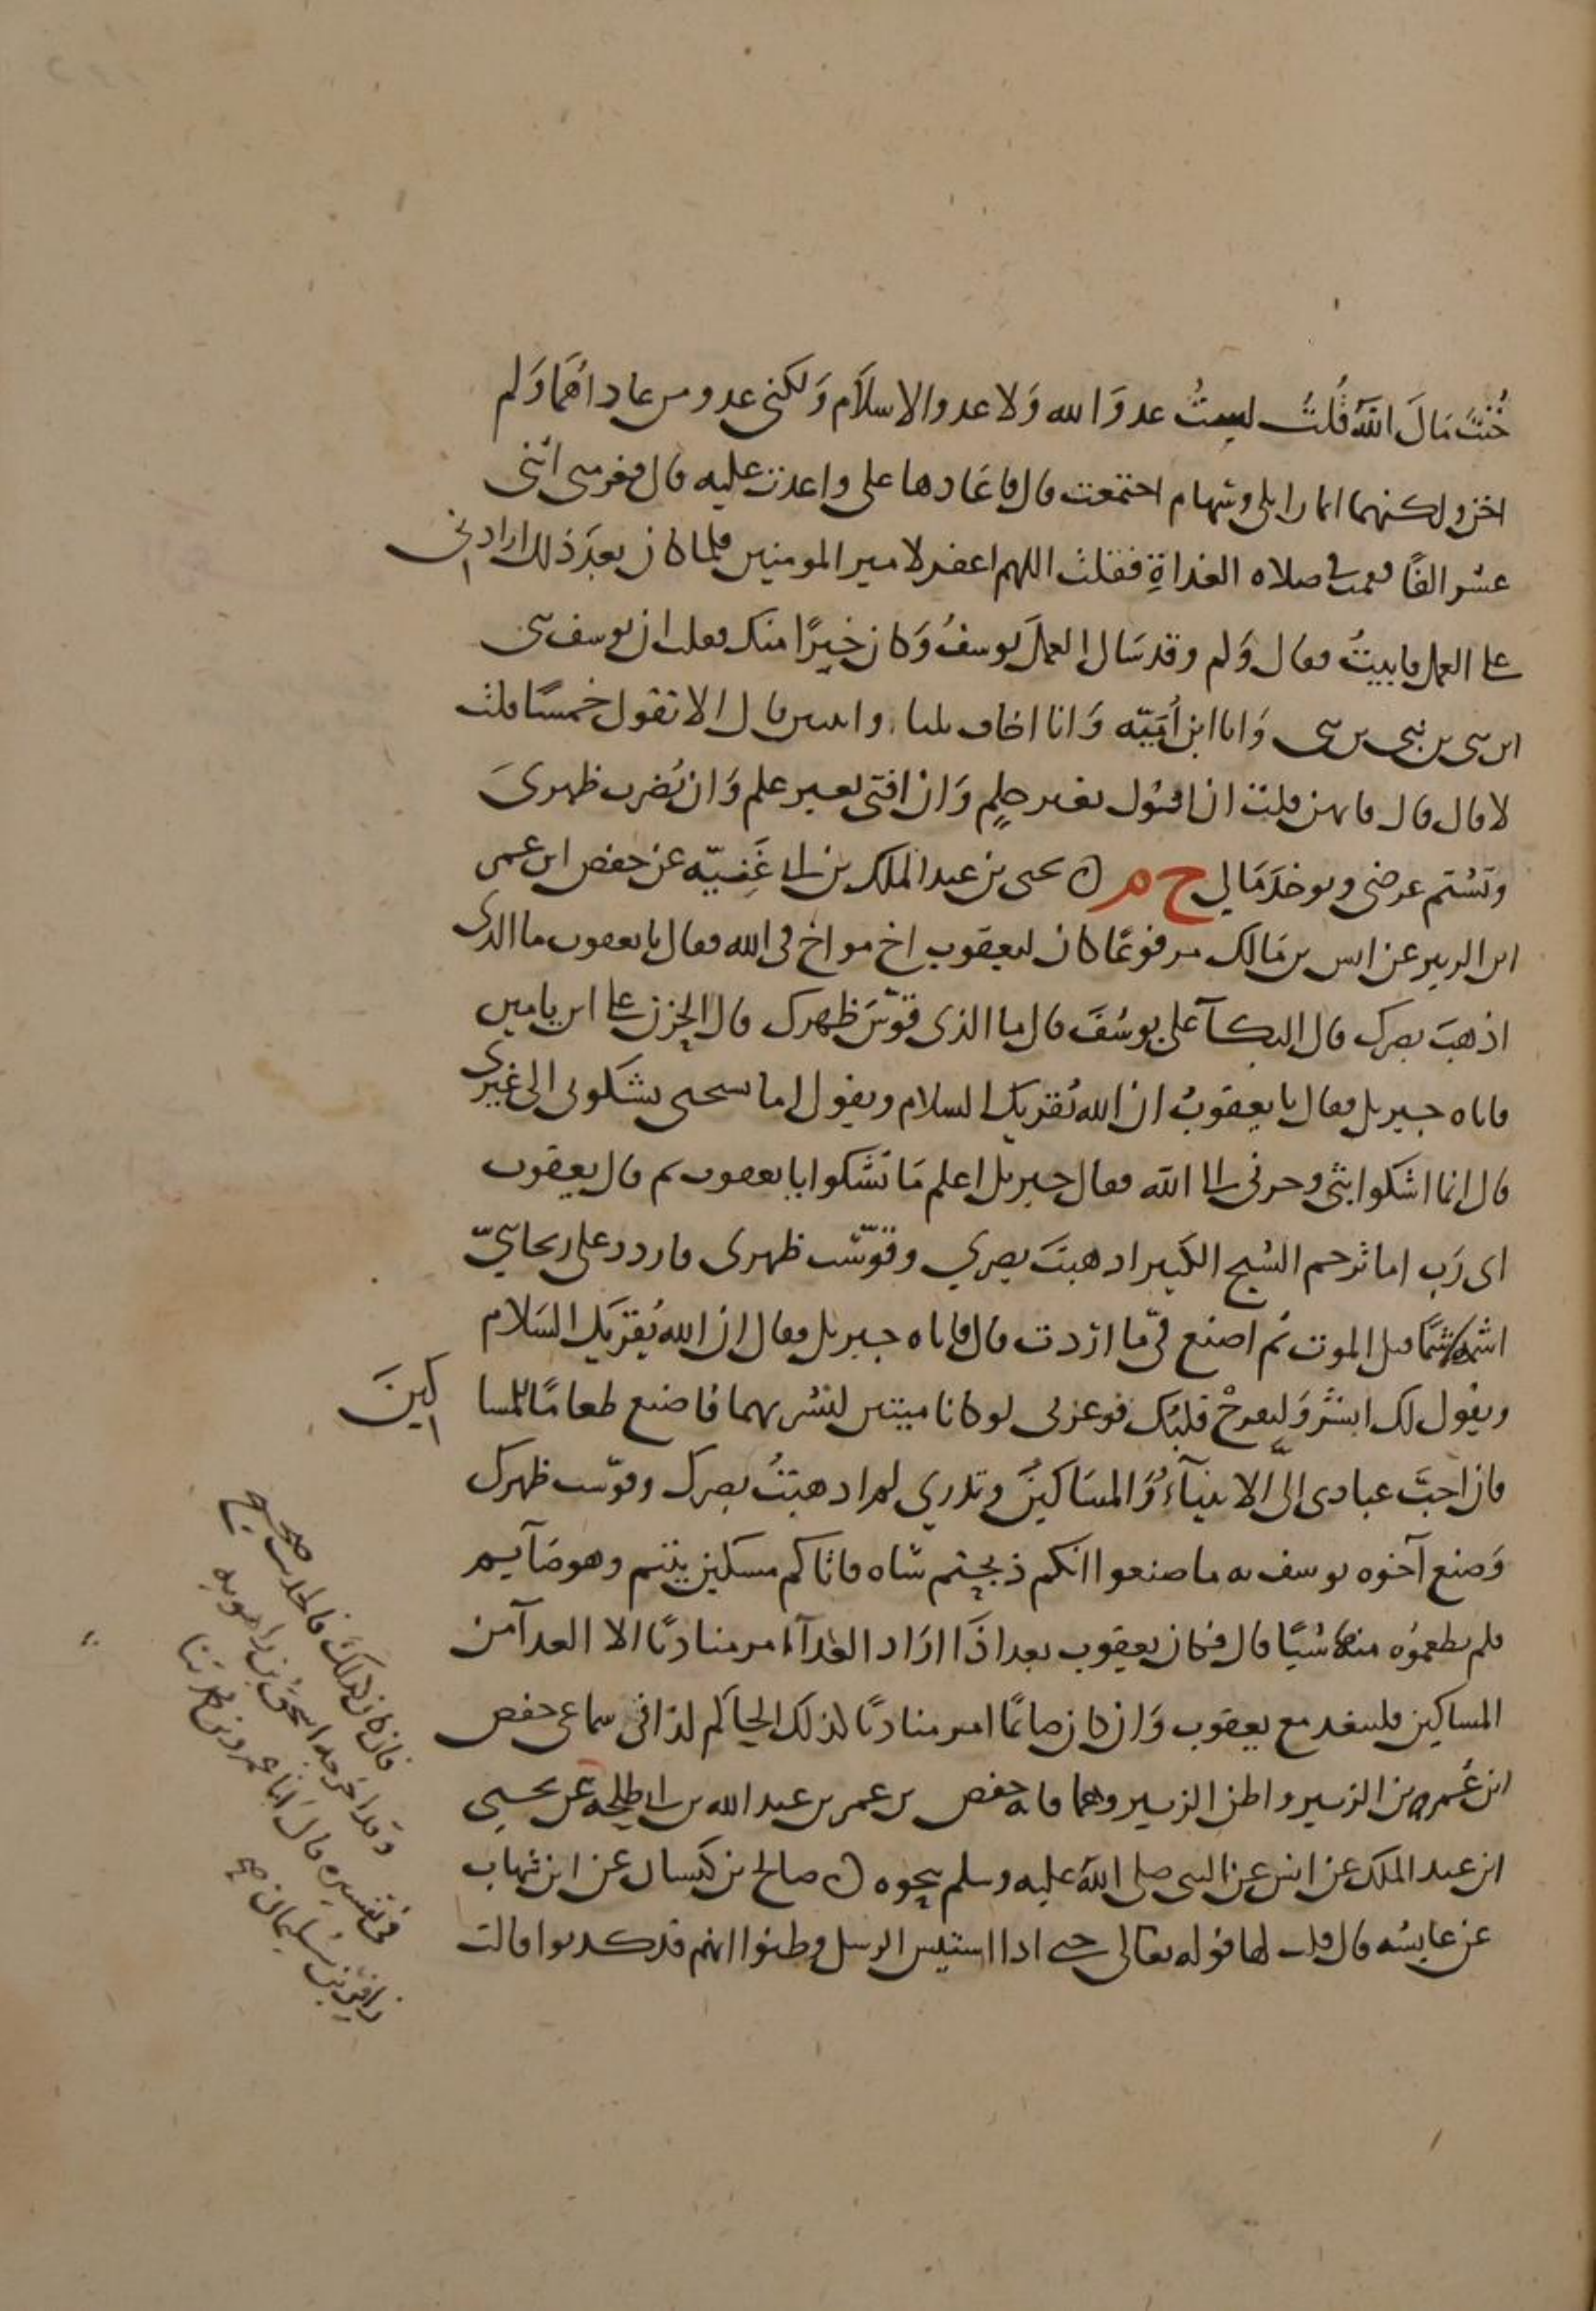 خُنْتَ مَالَ اللهِ قُلتُ لستُ عدوَ الله وَلا عدو الاسلاَم وَلكنى عدو من عاداهُمَا وَلم
اخن ولكنهما اثمار ابلى وسهام اجتمعت قال فاعَادها على واعدت عليه قال فغرمنى اثنى
عشر الفًا فقمت فى صلاه الغداةِ فقلت اللهم اغفر لامير المومنين فلما كان بعدَ ذلك ارادنى
على العمل فابيتُ فقال وَلم وقد سَال العملَ يوسفُ وَكان خيرًا منك فقلت ان يوسف نبى
ابن نبى بن نبى بن نبى وَانا ابن اُمَيّه وَانا اخاف ثلثا واثنين قال الا تقول خمسًا قلت
لا قال قال فما هن قلت ان اقول بغير حلمٍ وَان افتى بغير علم وَان يُضرب ظهرىَ
وتشتم عرضى ويوخذَ مَالي ح م ن يحيى بن عبد الملك بن ابى غَنِيّه عن حفص ابن عمر
ابن الزبير عن انس بن مَالك مرفوعًا كان ليعقوب اخ مواخ فى الله فقال يا يعقوب ما الذى
اذهبَ بصرك قال البكآ على يوسُفَ قال ما الذى قوّسَ ظهرك قال الحزن على ابن يامين
فاتاه جبريل فقال يا يعقوبُ ان الله يُقريك السلام ويقول اما تستحى تشكونى الى غيرى
قال انما اشكوا بثى وحزنى الى الله فقال جبريل اعلم مَا تشكوا يا يعقوب ثم قال يعقوب
اى رَب اما ترحم الشيخ الكبير اذهبتَ بصري وقوّست ظهرى فاردد على ريحانتىّ
اشمه شمًا قبل الموت ثم اصنع فىّ ما اردت قال فاتاه جبريل فقال ان الله يُقريك السَلام
ويقول لك ابشرْ وَليفرحْ قلبُك فوعزتى لو كانا ميتين لنشرتهما فاصنع طعامًا للمسا كينَ
فان احبَّ عبادى الىّ الانبيآءُ وَالمسَاكينُ وتدري لم اذهبتُ بصرك وقوّست ظهرك
وَصنع آخوه يوسف به ما صنعوا انكم ذبحتم شاه فاتاكم مسكين يتيم وهو صَآيم
فلم تطعموُه منها شيًا قال فكان يعقوب بعد اذَا ارَاد الغدآء امر مناديًا الا من ارادَ الغدآ من
المساكين فليتغد مع يعقوب وَان كان صَايمًا امر مناديًا كذلك الحَاكم كذا فى سماعى حفص
ابن عُمر بن الزبير واظن الزبير وهما فانه حفص بن عمر بن عبد الله بن ابى طلحه عن يحيى
ابن عبد الملك عن انس عن النبى صلى اللهُ عليه وسلم بنحوه ن صالح بن كيسان عن ابن شهاب
عن عايشه قال قلت لها قوله تعالى حتى اذا استيس الرسل وظنوا انهم قد كذبوا قالت
فان كان كذلكَ فالحديث صحيح
وقد اخرجه اسحَقُ بن راهويه
فى تفسيره قالَ انبا عمرو بن محمد ثنا
زافرُ بن سُليمان صح